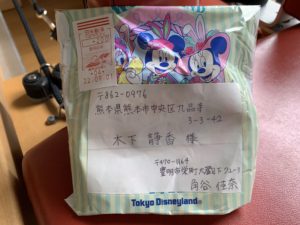 〒862-0976
熊本県熊本市中央区九品寺
3-3-42
木下 静香 様
〒470-1164
豊明市栄町大蔵下
角谷 佳奈
Tokyo Disneyland